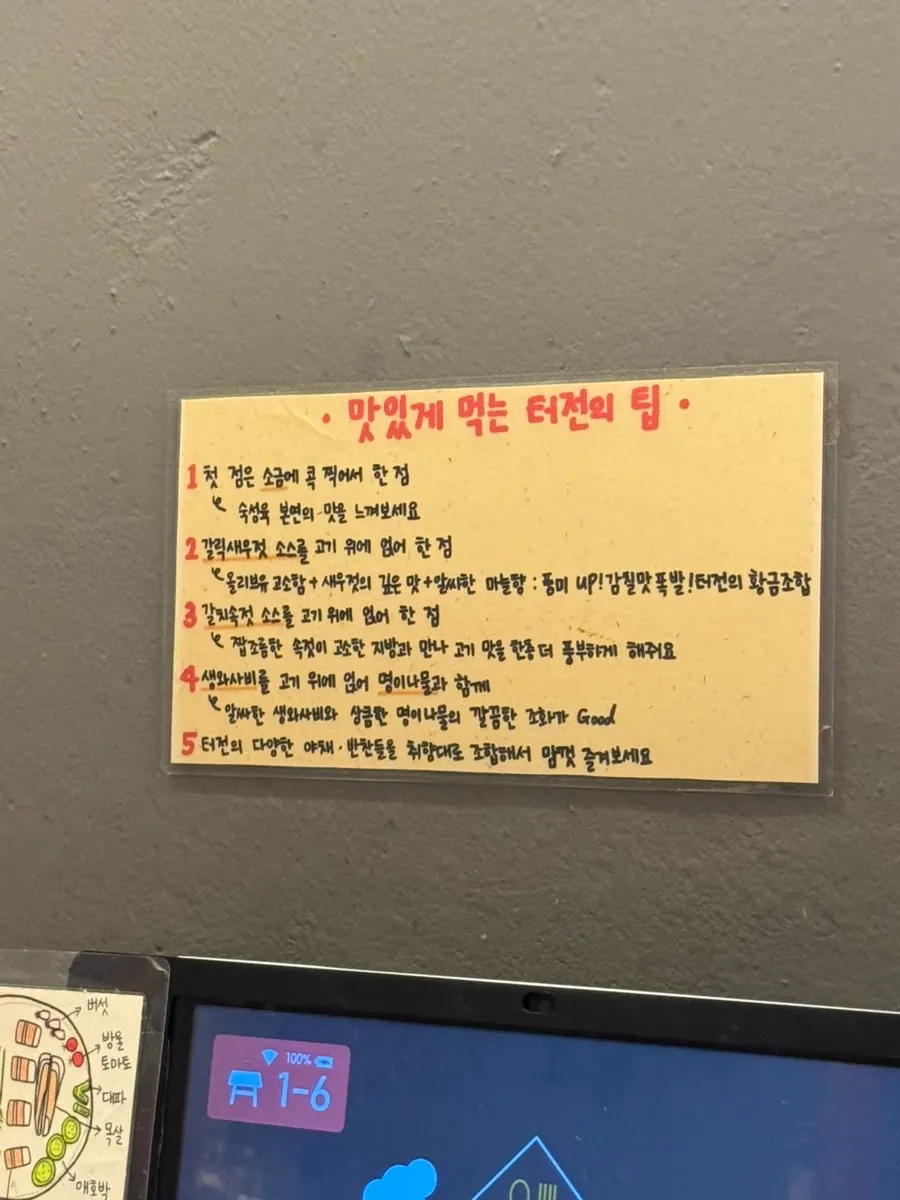 · 맛있게 먹는 터전의 팁 ·
1 첫 점은 소금에 콕 찍어서 한 점
숙성육 본연의 맛을 느껴보세요
2 갈릭새우젓 소스를 고기 위에 얹어 한 점
올리브유 고소함 + 새우젓의 깊은 맛 + 알싸한 마늘향 : 풍미 UP! 감칠맛 폭발! 터전의 황금조합
3 갈치속젓 소스를 고기 위에 얹어 한 점
짭조름한 속젓이 고소한 지방과 만나 고기 맛을 한층 더 풍부하게 해줘요
4 생와사비를 고기 위에 얹어 명이나물과 함께
알싸한 생와사비와 상큼한 명이나물의 깔끔한 조화가 Good
5 터전의 다양한 야채·반찬들을 취향대로 조합해서 맘껏 즐겨보세요
버섯
방울
토마토
대파
목살
애호박
100%
1-6